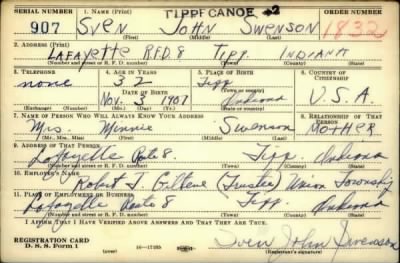 SERIAL NUMBER 1. NAME (Print) TIPPECANOE 2 ORDER NUMBER
907 Sven John Swenson 1832
(First) (Middle) (Last)
2. ADDRESS (Print)
LaFayette R.F.D. 8 Tipp. Indiana
(Number and street or R. F. D. number) (Town) (County) (State)
3. TELEPHONE 4. AGE IN YEARS 5. PLACE OF BIRTH 6. COUNTRY OF CITIZENSHIP
none 32 Tipp
DATE OF BIRTH (Town or county)
Nov. 3 1907 Indiana U.S.A.
(Exchange) (Number) (Mo.) (Day) (Yr.) (State or country)
7. NAME OF PERSON WHO WILL ALWAYS KNOW YOUR ADDRESS 8. RELATIONSHIP OF THAT PERSON
Mrs. Minnie Swenson Mother
(Mr., Mrs., Miss) (First) (Middle) (Last)
9. ADDRESS OF THAT PERSON
Lafayette Route 8. Tipp Indiana
(Number and street or R. F. D. number) (Town) (County) (State)
10. EMPLOYER'S NAME
Robert J. (Trustee) Union Township
11. PLACE OF EMPLOYMENT OR BUSINESS
Lafayette Route 8 Tipp. Indiana
(Number and street or R. F. D. number) (Town) (County) (State)
I AFFIRM THAT I HAVE VERIFIED ABOVE ANSWERS AND THAT THEY ARE TRUE.
REGISTRATION CARD
D. S. S. Form 1 (over) 16—17105 Sven John Swenson
(Registrant's signature)